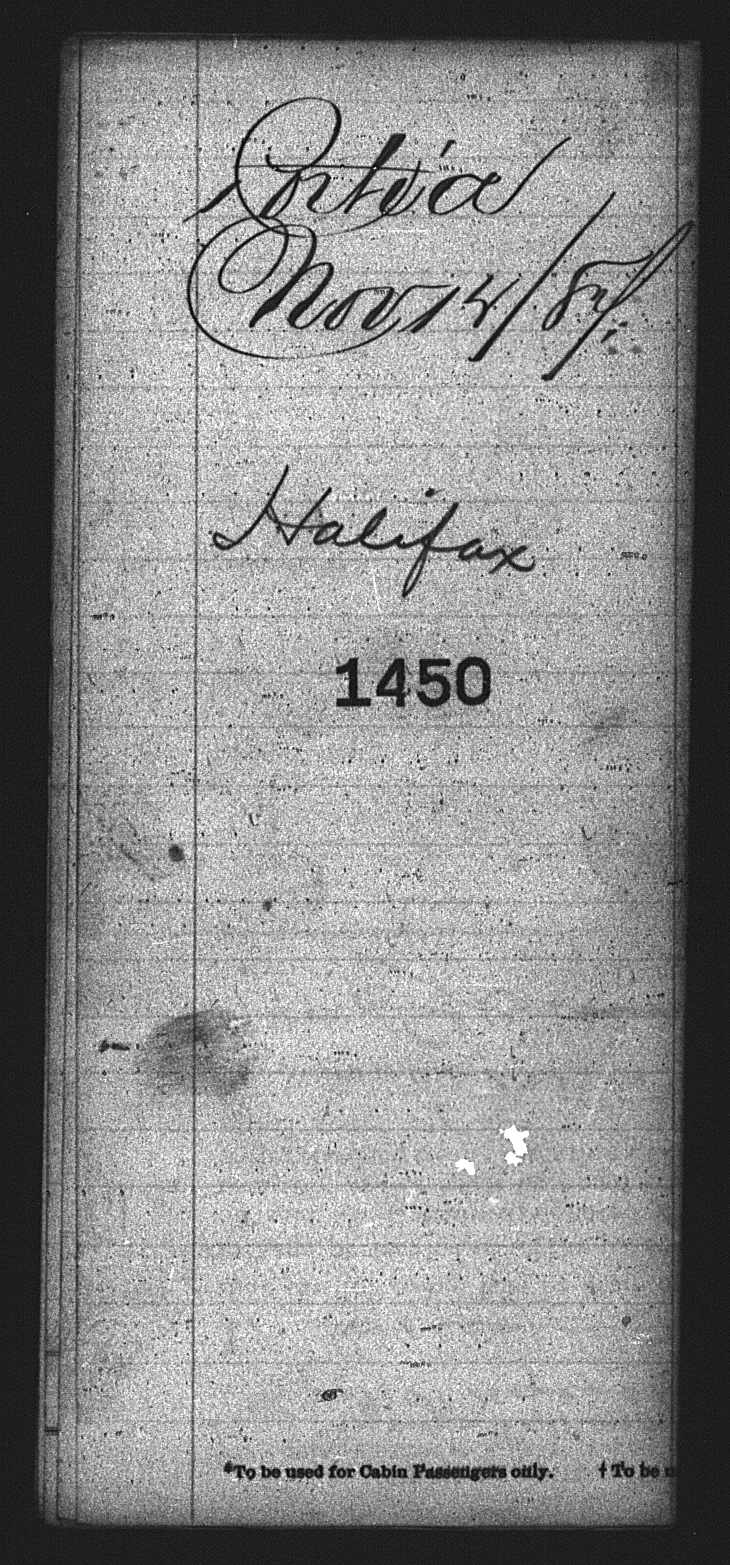 Portia
Nov 12/87.
Halifax
1450
*To be used for Cabin Passengers only. † To be